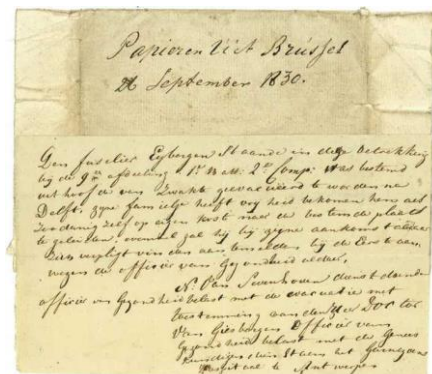 Papieren Uit Brussel
26 September 1830.
Den fuselier Eybergen Staande in deze betrekking
bij de 9de afdeeling 1e B M: 2e Comp: was bestemd
uit hoofde van Zwakte geevacueerd te worden na
Delft. zyne familje heeft vryheid bekomen hem als
zoodanig zelf op eigen kost naar de bestemde plaats
te geleiden. evenwel zal hy by zyne aankomst aldaar
Zich verpligt vinden aan te melden by de Eerste aan
wezende officier van Gezondheid aldaar,
N. Van Sevenhoven dienstdoende
officier van Gezondheid belast met de evacuatie met
toestemming van den Heer Doctor
Van Giesbergen Officier van
Gezondheid belast met de Genees
kundigen dienst aan het Guarnizoens
Hospitaal te Antwerpen